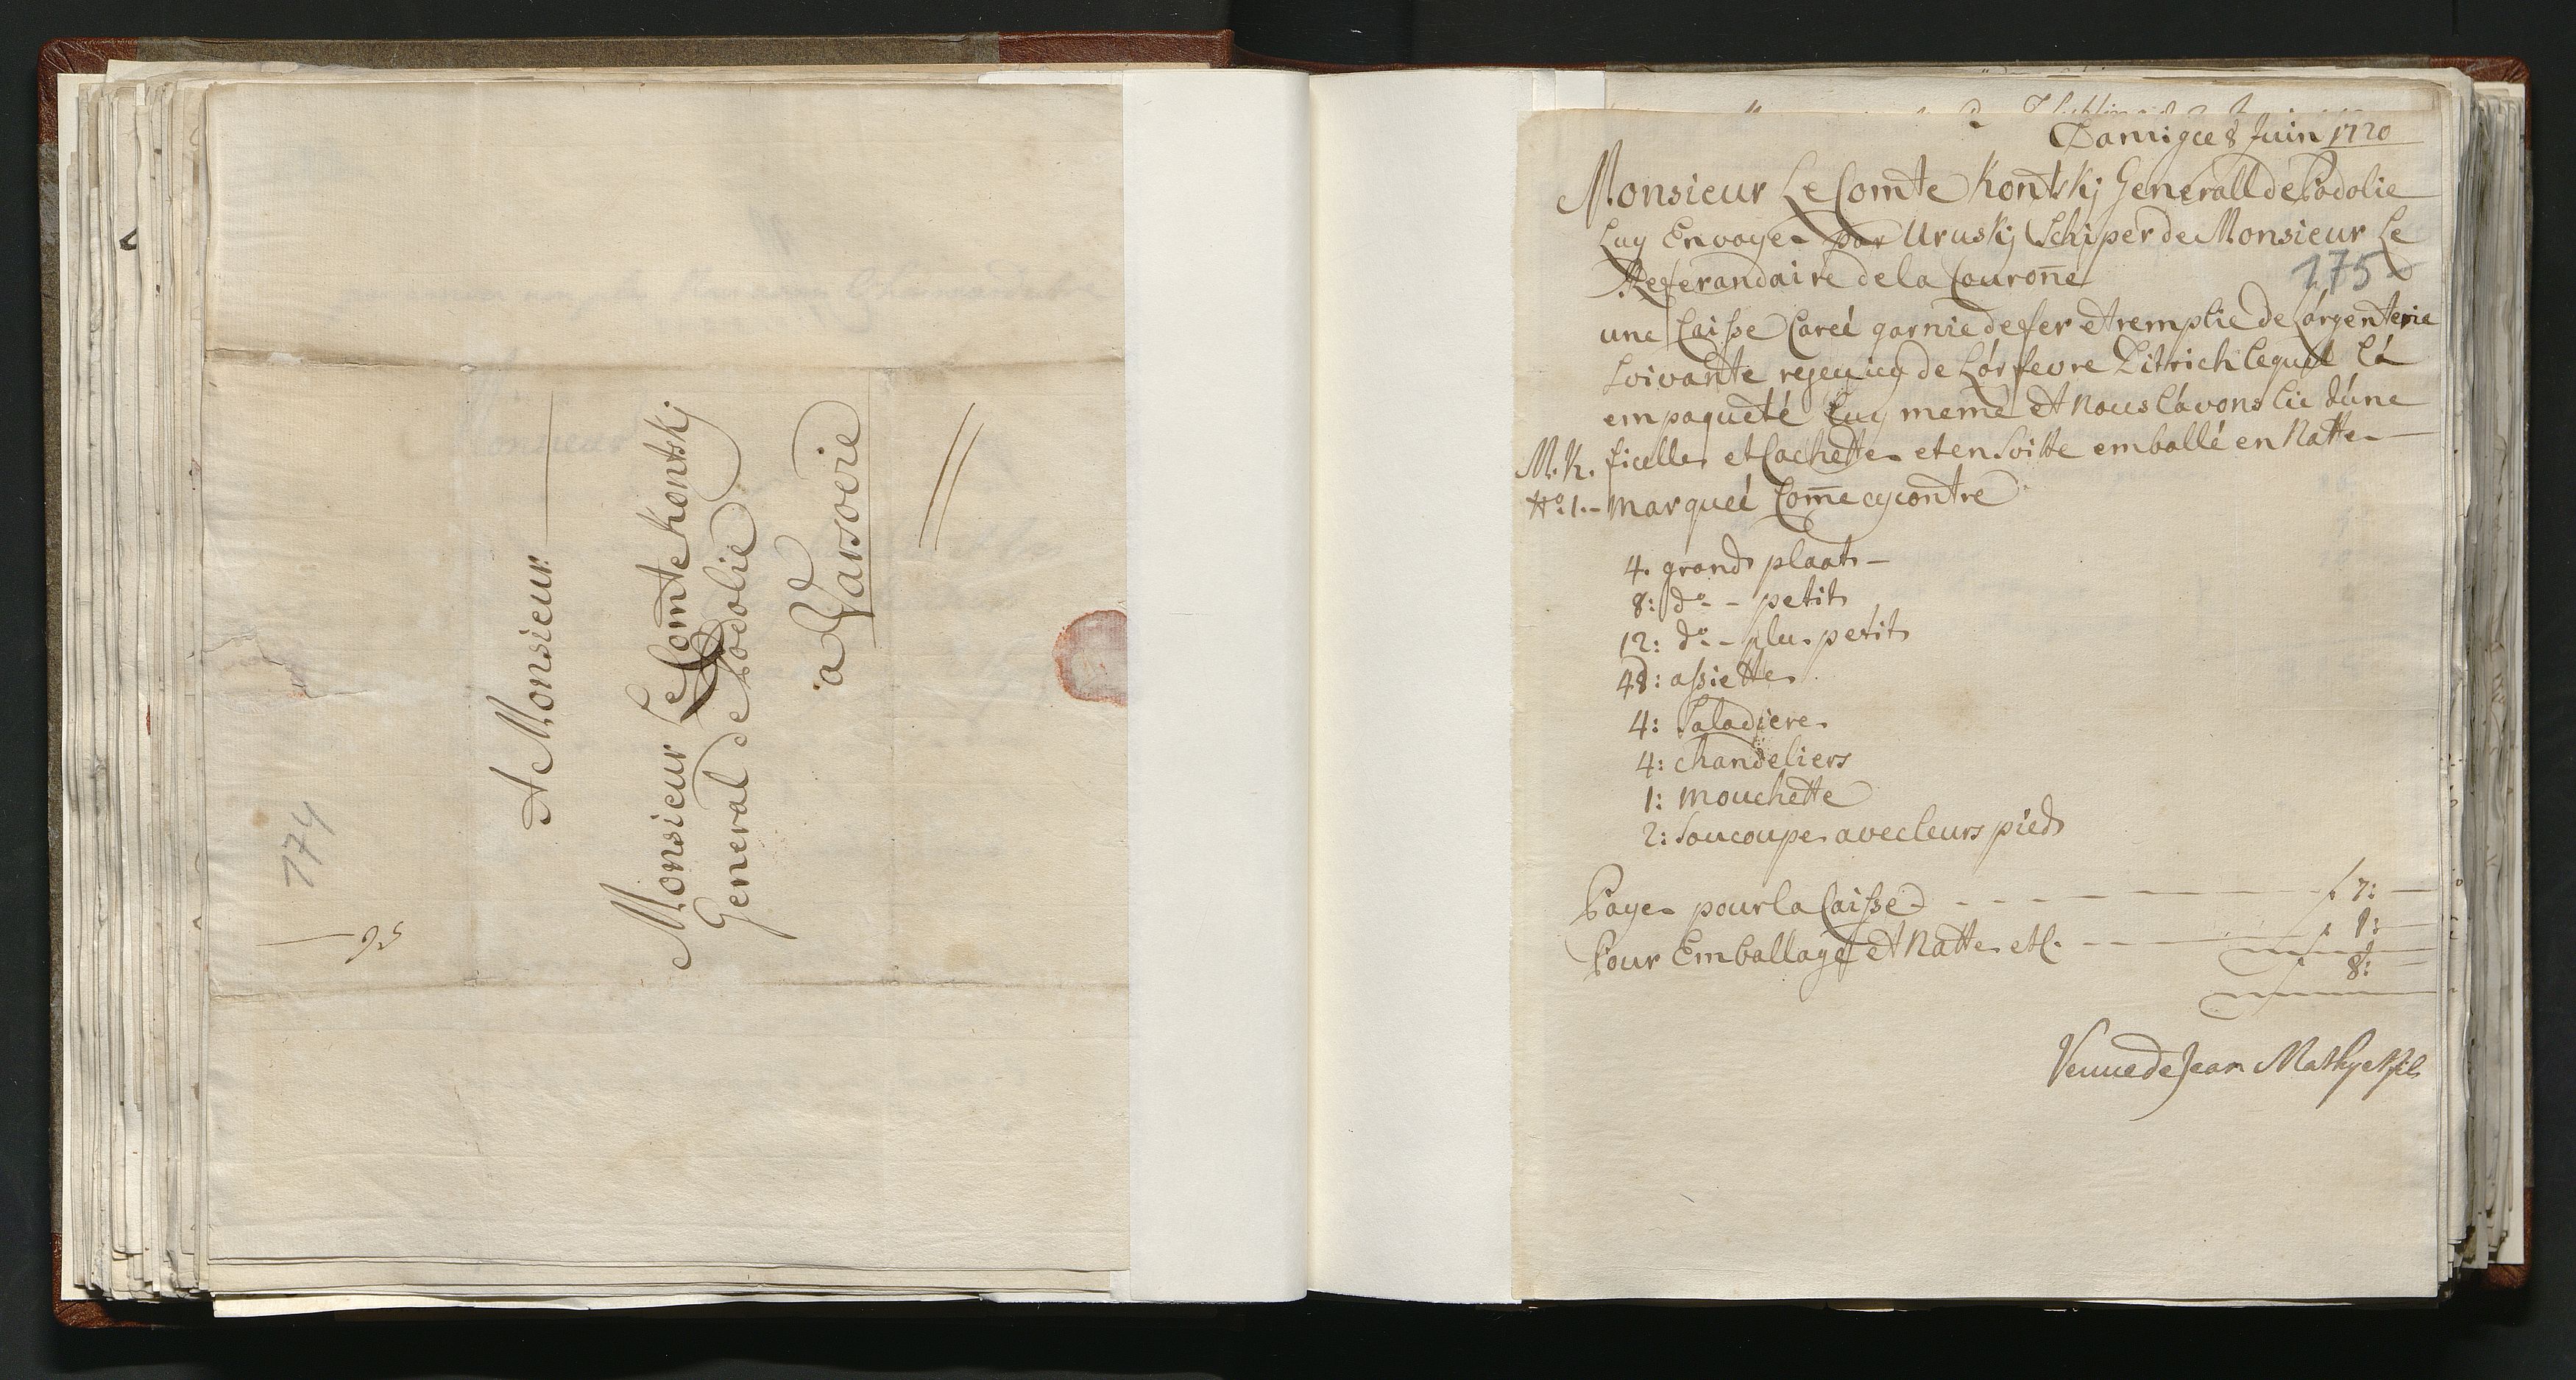 A Monsieur
Monsieur Le Comte Kontskj
General de Podolie
a Varsovie
174
95
Dantzig ce 8 Juin 1720
Monsieur Le Comte Kontskj Generall de Podolie
Luy Envoye par Uruskj Schiper de Monsieur Le
Referandaire de la Couroñe
175
une Caisse Careé garnie de fer et remplie de Lárgenterie
Soivante de Lórfevre Ditrich lequel Lá
empaqueté Luy meme et nous lávons lie dúne
M.K. ficelles et Cachettes et en Soitte emballé en Natte
No: 1.- marqueé Com̃e cy contre
4. grands plaats -
8: do - petits
12: do - plus petits
48: assiettes
4: Saladieres
4: chandeliers
1: mouchette
2: Soucoupes avec leurs pieds
Payes pour la Caisse - - - - f 7: -
Pour Emballage et Nattes etc. - - - f 1: -
f 8: -
Veuue de Jean Mathy et fils